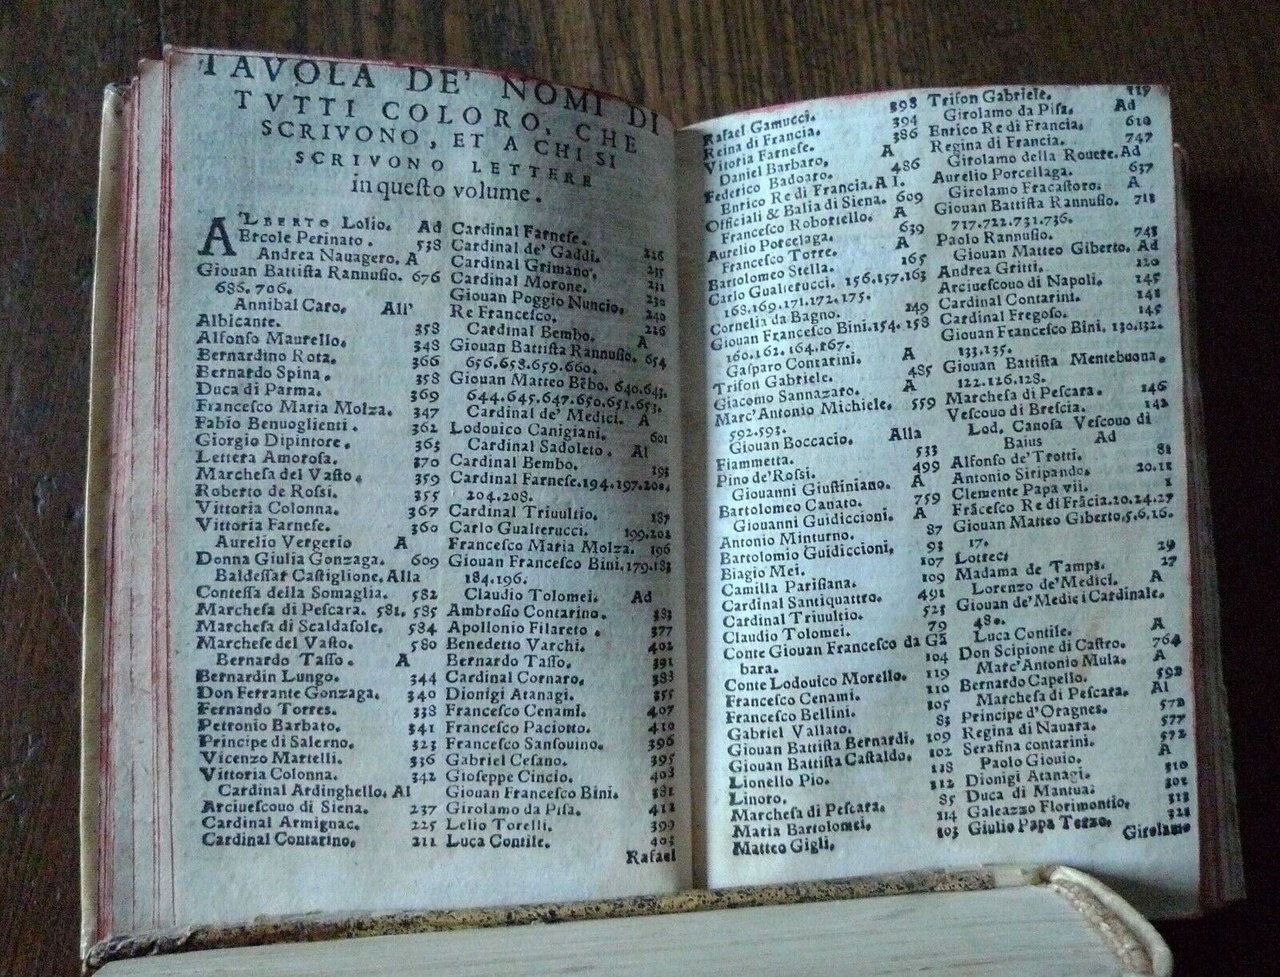 TAVOLA DE' NOMI DI
TVTTI COLORO, CHE
SCRIVONO, ET A CHI SI
SCRIVONO LETTERE
in questo volume.
A'LBERTO Lolio. Ad
Ercole Perinato. 538
Andrea Nauagero. A
Giouan Battista Rannusio. 676
686. 706.
Annibal Caro. All'
Albicante. 358
Alfonso Maurello. 348
Bernardino Rota. 366
Bernardo Spina. 358
Duca di Parma. 369
Francesco Maria Molza. 347
Fabio Benuoglienti. 362
Giorgio Dipintore. 363
Lettera Amorosa. 370
Marchesa del Vasto. 359
Roberto de Rossi. 355
Vittoria Colonna. 367
Vittoria Farnese. 360
Aurelio Vergerio A
Donna Giulia Gonzaga. 609
Baldessar Castiglione. Alla
Contessa della Somaglia. 582
Marchesa di Pescara. 581. 585
Marchesa di Scaldasole. 584
Marchese del Vasto. 580
Bernardo Tasso. A
Bernardin Lungo. 344
Don Ferrante Gonzaga. 340
Fernando Torres. 338
Petronio Barbato. 341
Principe di Salerno. 323
Vicenzo Martelli. 336
Vittoria Colonna. 342
Cardinal Ardinghello. Al
Arciuescouo di Siena. 237
Cardinal Armignac. 225
Cardinal Contarino. 211
Cardinal Farnese. 226
Cardinal de' Gaddi. 235
Cardinal Grimano. 211
Cardinal Morone. 230
Giouan Poggio Nuncio. 240
Re Francesco. 226
Cardinal Bembo. A
Giouan Battista Rannusio. 654
656. 658. 659. 660.
Giouan Matteo Bẽbo. 640. 643.
644. 645. 647. 650. 651. 653.
Cardinal de' Medici. A
Lodouico Canigiani. 601
Cardinal Sadoleto. Al
Cardinal Bembo. 193
Cardinal Farnese. 194. 197. 202.
204. 208.
Cardinal Triuultio. 187
Carlo Gualterucci. 199. 202
Francesco Maria Molza. 196
Giouan Francesco Bini. 179. 183
184. 196.
Claudio Tolomei. Ad
Ambrosio Contarino. 383
Apollonio Filareto. 377
Benedetto Varchi. 402
Bernardo Tasso. 391
Cardinal Cornaro. 383
Dionigi Atanagi. 355
Francesco Cenami. 407
Francesco Paciotto. 410
Francesco Sansouino. 396
Gabriel Cesano. 395
Gioseppe Cincio. 403
Giouan Francesco Bini. 381
Girolamo da Pisa. 412
Lelio Torelli. 399
Luca Contile. 403
Rafael
Rafael Gamucci. 398
Reina di Francia. 394
Vitoria Farnese. 386
Daniel Barbaro. A
Federico Badoaro. 486
Enrico Re di Francia. A I.
Officiali & Balia di Siena. 609
Francesco Robortello. A
Aurelio Porcelaga. 639
Francesco Torre. A
Bartolomeo Stella. 165
Carlo Gualterucci. 156. 157. 163
168. 169. 171. 172. 175.
Cornelia da Bagno. 249
Giouan Francesco Bini. 154. 158
160. 162. 164. 167.
Gasparo Contarini. A
Trifon Gabriele. 485
Giacomo Sannazaro. A
Marc'Antonio Michiele. 559
592. 593.
Giouan Boccacio. Alla
Fiammetta. 533
Pino de'Rossi. 499
Giouanni Giustiniano. A
Bartolomeo Canato. 759
Giouanni Guidiccioni. A
Antonio Minturno. 87
Bartolomio Guidiccioni. 93
Biagio Mei. 107
Camilla Parisana. 109
Cardinal Santiquattro. 491
Cardinal Triuultio. 523
Claudio Tolomei. 79
Conte Giouan Francesco da Gã
bara. 104
Conte Lodouico Morello. 119
Francesco Cenami. 110
Francesco Bellini. 105
Gabriel Vallato. 83
Giouan Battista Bernardi. 109
Giouan Battista Castaldo. 102
Lionello Pio. 118
Linoro. 112
Marchesa di Pescara. 85
Maria Bartolomei. 114
Matteo Gigli. 103
Trifon Gabriele. 119
Girolamo da Pisa. Ad
Enrico Re di Francia. 610
Regina di Francia. 747
Girolamo della Rouere. Ad
Aurelio Porcellaga. 637
Girolamo Fracastoro. A
Giouan Battista Rannusio. 718
717. 722. 731. 736.
Paolo Rannusio. 743
Giouan Matteo Giberto. Ad
Andrea Gritti. 120
Arciuescouo di Napoli. 145
Cardinal Contarini. 141
Cardinal Fregoso. 145
Giouan Francesco Bini. 130. 132.
133. 135.
Giouan Battista Mentebuona.
122. 126. 128.
Marchesa di Pescara. 146
Vescouo di Brescia. 142
Lod. Canossa Vescouo di
Baius Ad
Alfonso de'Trotti. 81
Antonio Siripando. 20. 18
Clemente Papa vii. 1
Frãcesco Re di Frãcia. 20. 24. 27
Giouan Matteo Giberto. 5. 6. 16.
17.
Lotrect 29
Madama de Tamps. 27
Lorenzo de'Medici. A
Giouan de'Medici Cardinale.
480.
Luca Contile. A
Don Scipione di Castro. 764
Marc'Antonio Mula. A
Bernardo Capello. 592
Marchesa di Pescara. Al
Principe d'Oragnes. 572
Regina di Nauara. 577
Serafina contarini. 572
Paolo Giouio. A
Dionigi Atanagi. 310
Duca di Mantua. 302
Galeazzo Florimontio. 313
Giulio Papa Terzo. 328
Girolamo